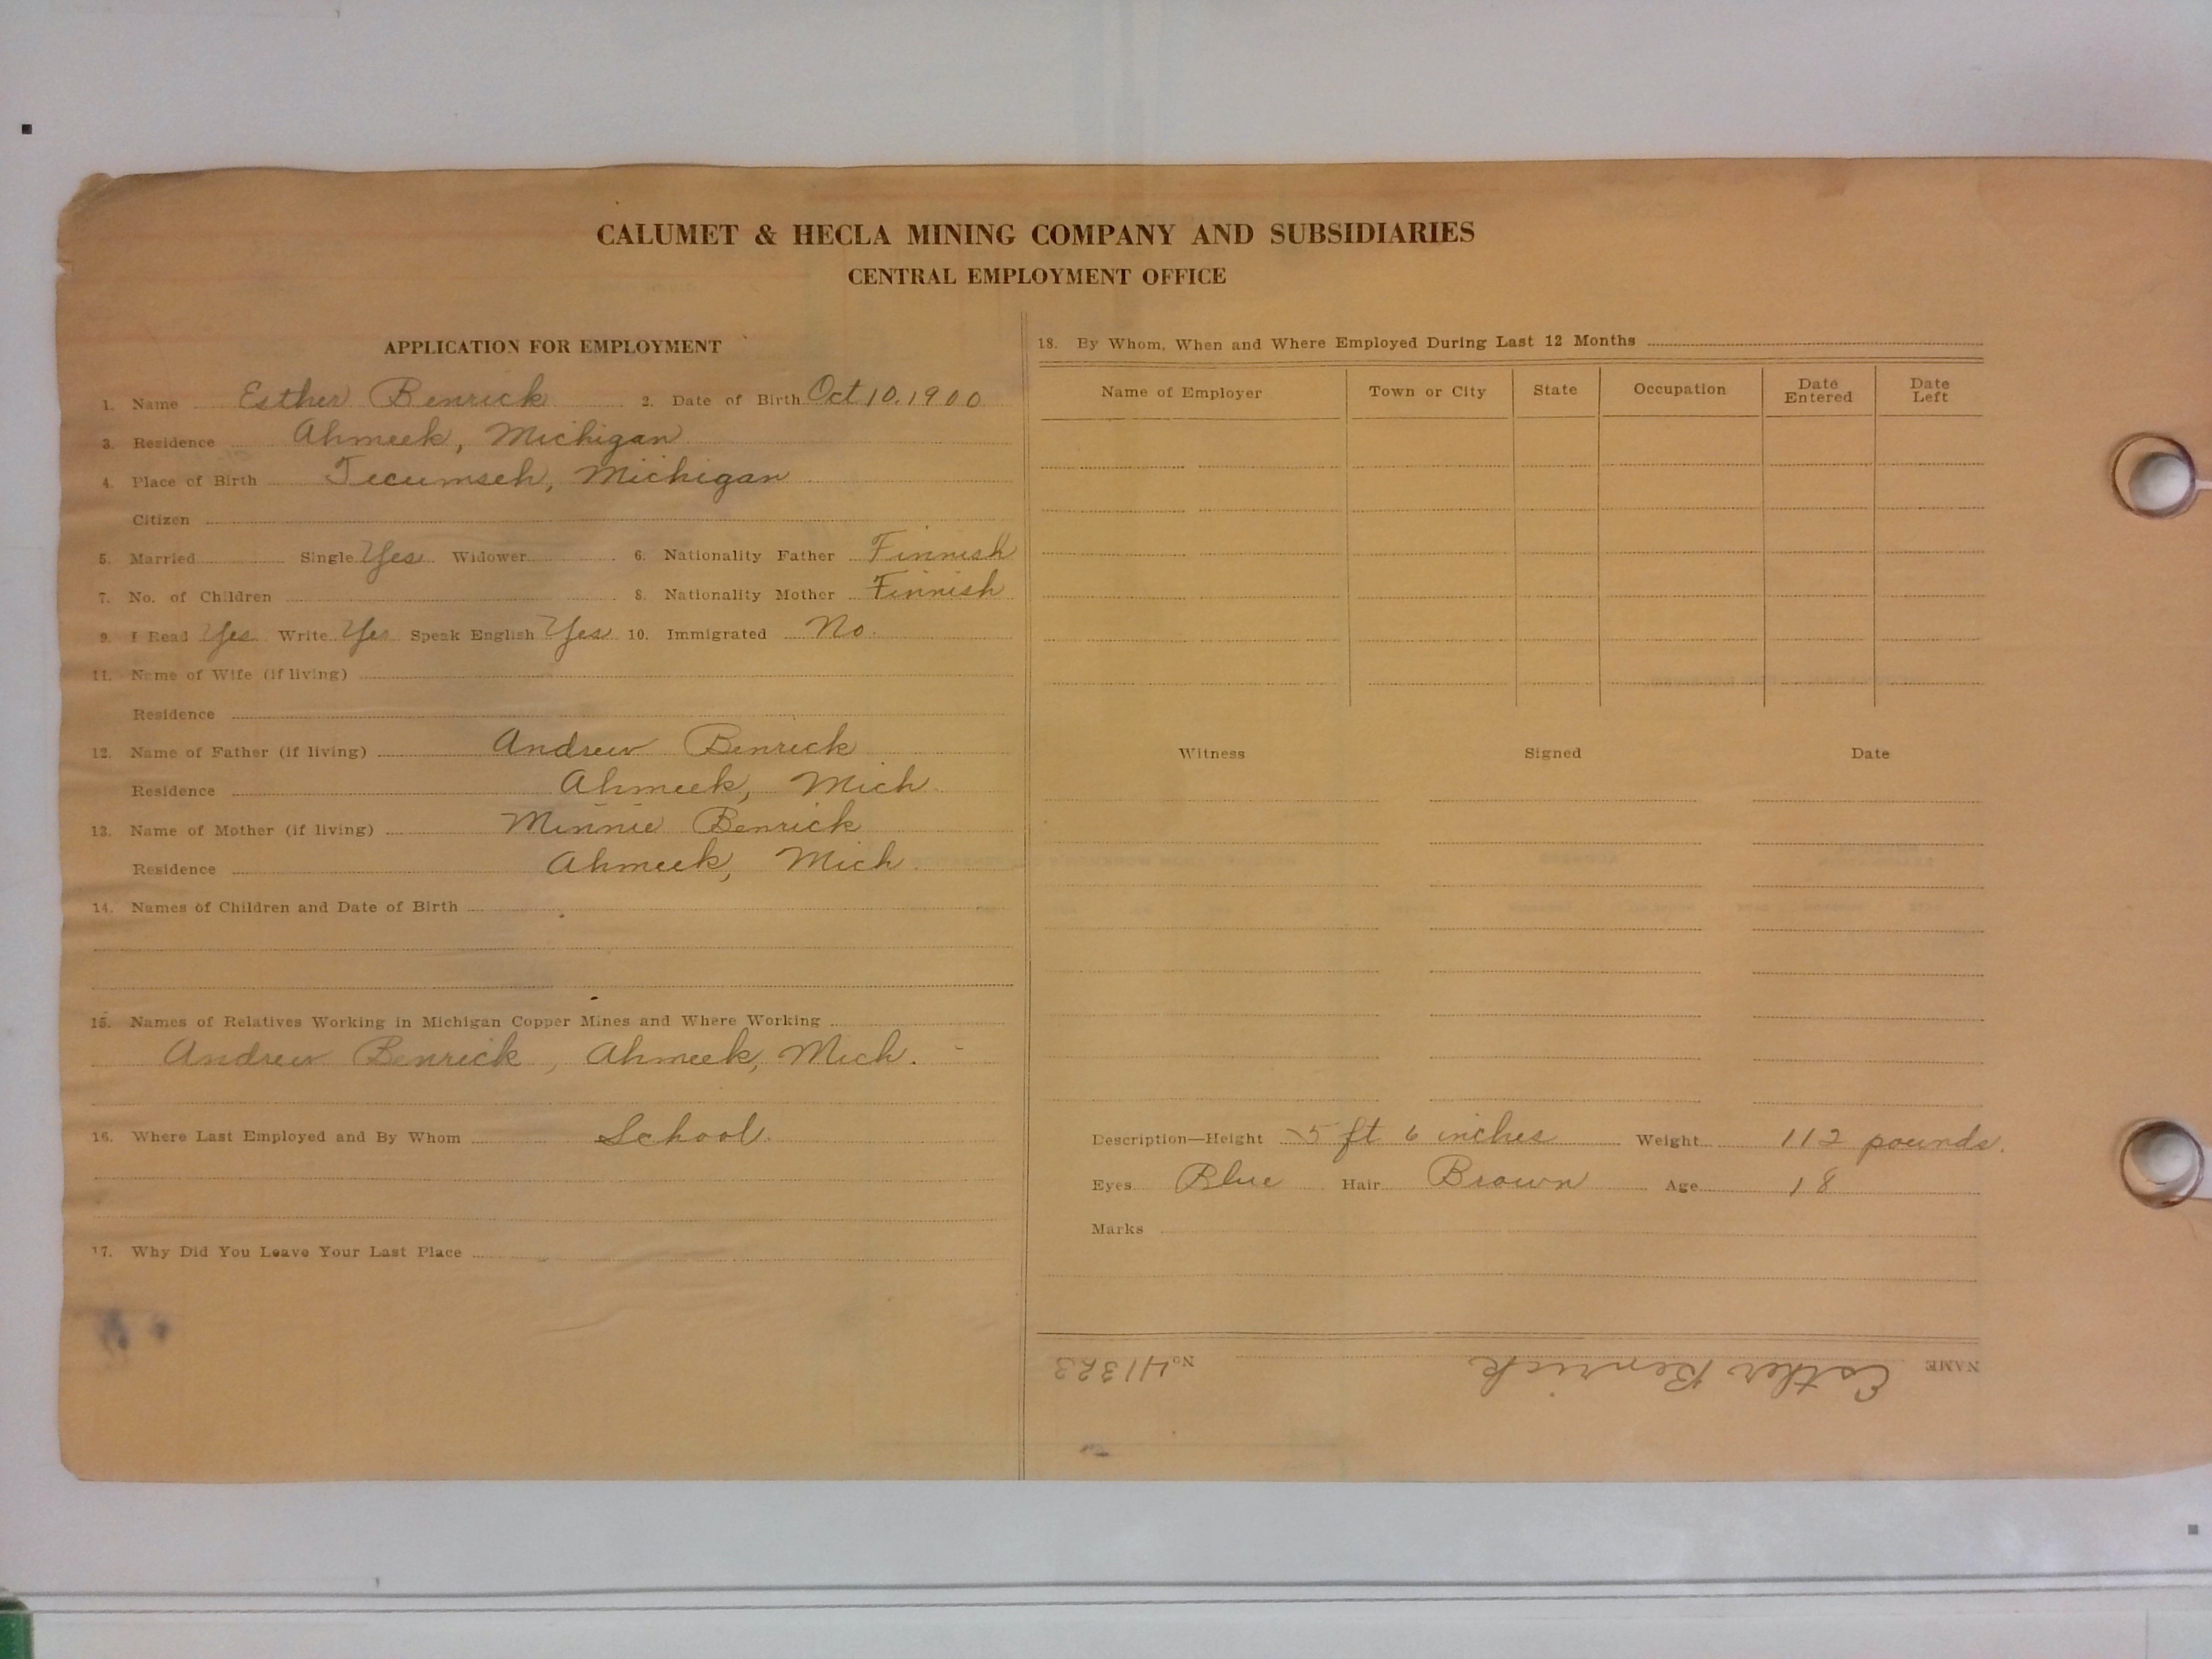 CALUMET & HECLA MINING COMPANY AND SUBSIDIARIES
CENTRAL EMPLOYMENT OFFICE
APPLICATION FOR EMPLOYMENT
1. Name Esther Benrick 2. Date of Birth Oct 10, 1900
3. Residence Ahmeek, Michigan
4. Place of Birth Tecumseh, Michigan
Citizen
5. Married Single Yes Widower 6. Nationality Father Finnish
7. No. of Children 8. Nationality Mother Finnish
9. I Read Yes Write Yes Speak English Yes 10. Immigrated No.
11. Name of Wife (if living)
Residence
12. Name of Father (if living) Andrew Benrick
Residence Ahmeek, Mich.
13. Name of Mother (if living) Minnie Benrick
Residence Ahmeek, Mich.
14. Names of Children and Date of Birth
15. Names of Relatives Working in Michigan Copper Mines and Where Working
Andrew Benrick, Ahmeek, Mich.
16. Where Last Employed and By Whom School.
17. Why Did You Leave Your Last Place
18. By Whom, When and Where Employed During Last 12 Months
Name of Employer Town or City State Occupation Date Entered Date Left
Witness Signed Date
Description—Height 5 ft 6 inches Weight 112 pounds.
Eyes Blue Hair Brown Age 18
Marks
NAME Esther Benrick No. 41323